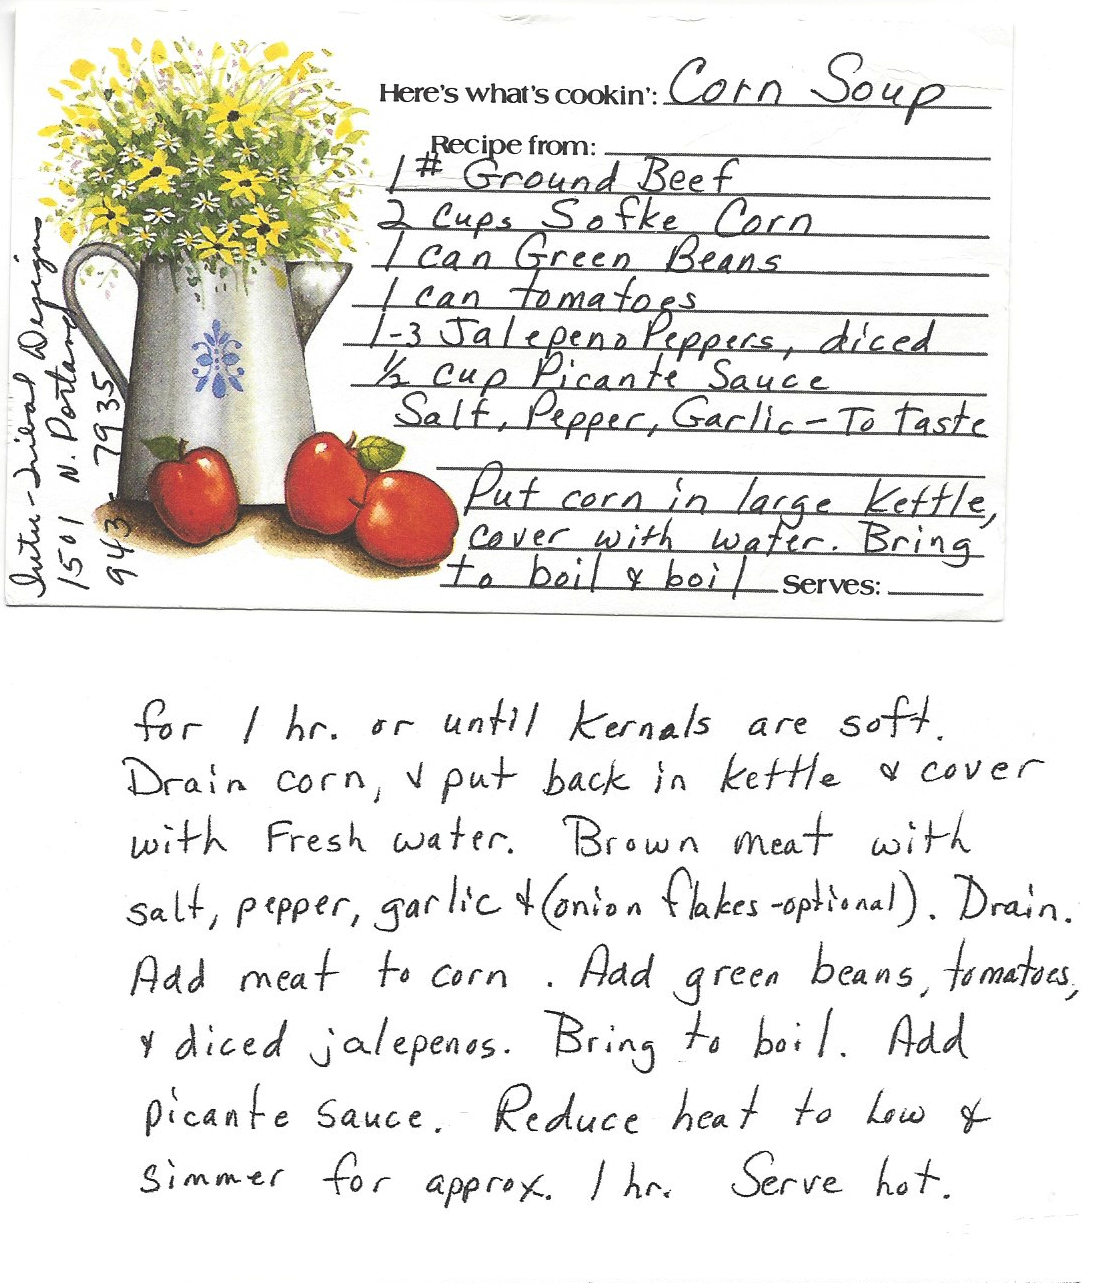 Here's what's cookin': Corn Soup
Recipe from:
1# Ground Beef
2 cups Sofke Corn
1 can Green Beans
1 can tomatoes
1-3 Jalepeno Peppers, diced
½ cup Picante Sauce
Salt, Pepper, Garlic - To taste
Put corn in large kettle,
cover with water. Bring
to boil & boil Serves:
Inter-Tribal Designs
1501 N. Portland
943-7935
for 1 hr. or until kernals are soft.
Drain corn, & put back in kettle & cover
with Fresh water. Brown meat with
salt, pepper, garlic & (onion flakes-optional). Drain.
Add meat to corn . Add green beans, tomatoes,
& diced jalepenos. Bring to boil. Add
picante sauce. Reduce heat to Low &
simmer for approx. 1 hr. Serve hot.